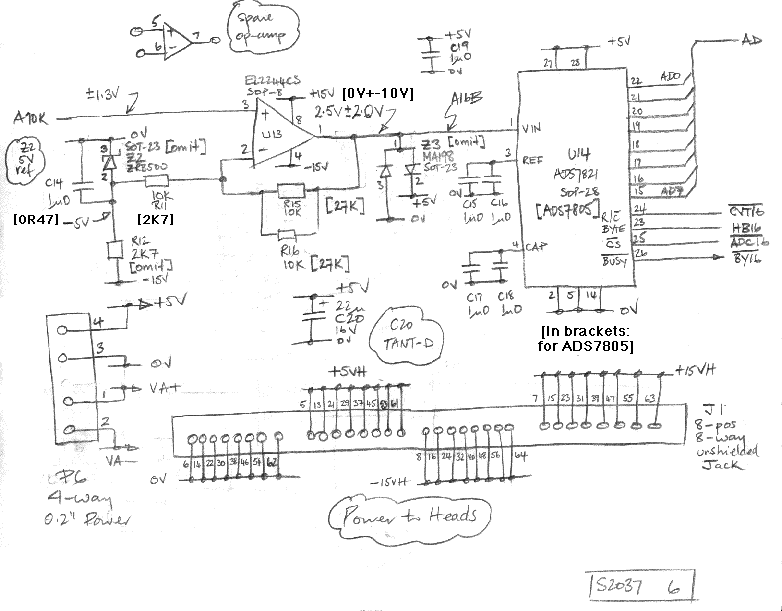 5
6
7
Spare
op-amp
+5V
C19
1u0
0V
+5V
27
28
AD
22 AD0
21
20
19
18
17
16
15 AD7
EL2244CS
SOP-8
+15V
±1.3V
[0V+-10V]
2.5V±2.0V
A16B
3
8
1
U13
2
4
-15V
Z2
5V
ref
0V
3
SOT-23 [omit]
Z2
2
C14
1u0
10K
R11
[0R47]
-5V
[2K7]
R12
2K7
[omit]
-15V
R15
10K
[27K]
R16
10K [27K]
Z3 [omit]
MA198
SOT-23
1
3
2
+5V
0V
1
VIN
3
REF
C15
1u0
C16
1u0
0V
4
CAP
C17
1u0
C18
1u0
0V
U14
ADS7821
SOP-28
[ADS7805]
R/C
BYTE
CS
BUSY
24 CVT16
23 HB16
25 ADC16
26 BY16
2 5 14
0V
[In brackets:
for ADS7805]
+5V
+
22u
C20
16V
0V
C20
TANT-D
4
+5V
3
0V
1
VA+
2
VA-
P6
4-way
0.2" Power
+5VH
5 13 21 29 37 45 53 61
+15VH
7 15 23 31 39 47 55 63
6 14 22 30 38 46 54 62
0V
8 16 24 32 40 48 56 64
-15VH
J1
8-pos
8-way
unshielded
Jack
Power to Heads
S2037 6